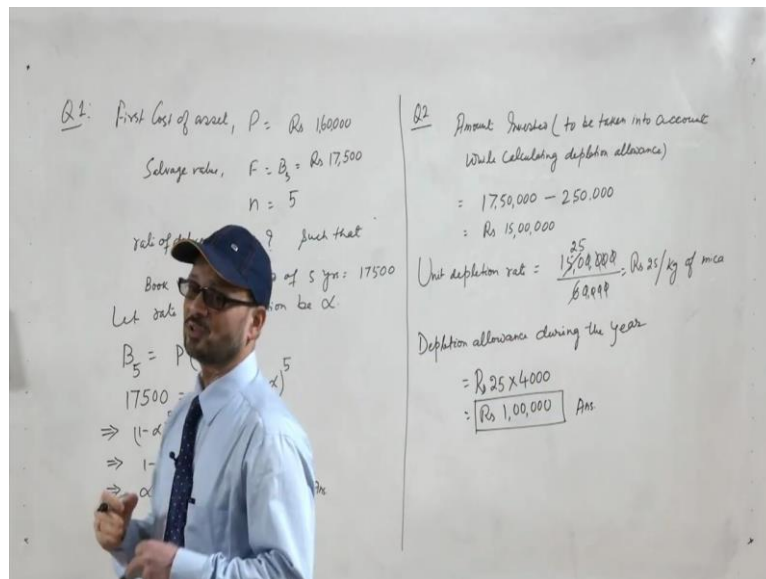 Q1: First Cost of asset, P = Rs 1,60,000
Salvage value, F = B5 = Rs 17,500
n = 5
rate of ? such that
Book of 5 yrs = 17500
Let rate ion be α.
B5 = P(
17500 = α)^5
⇒ (1-α
⇒ 1-
⇒ α Ans
Q2 Amount Invested (to be taken into account
while calculating depletion allowance)
= 17,50,000 - 250,000
= Rs 15,00,000
25
Unit depletion rate = 15,00,000 / 60,000 = Rs 25/kg of mica
Depletion allowance during the year
= Rs 25 x 4000
= Rs 1,00,000 Ans.